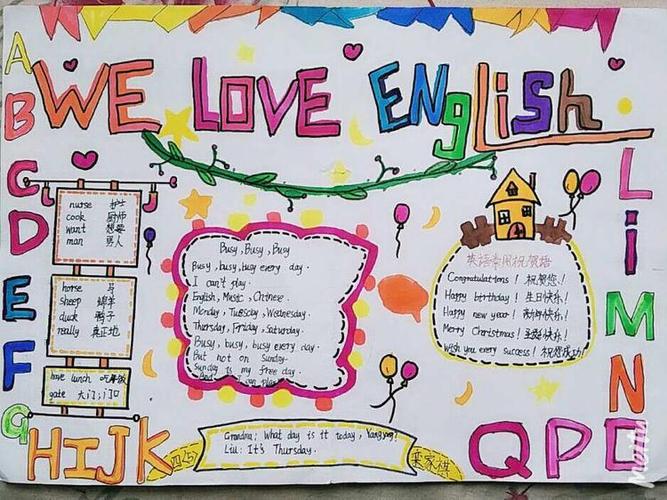 WE LOVE ENgLiSH
A
B
C
D
E
F
G
HIJK
L
i
M
N
O
QP
nurse 护士
cook 厨师
want 想要
man 男人
horse 马
sheep 绵羊
duck 鸭子
really 真正地
have lunch 吃午饭
gate 大门;门口
Busy,Busy,Busy
Busy,busy,busy every day.
I can't play.
English, Music, Chinese.
Monday, Tuesday, Wednesday.
Thursday, Friday, Saturday.
Busy, busy, busy every day.
But not on Sunday.
Sunday is my free day.
And I can play
英语常用祝贺语
Congratulations! 祝贺您!
Happy birthday! 生日快乐!
Happy new year! 新年快乐!
Merry Christmas! 圣诞快乐!
Wish you every success! 祝您成功!
Grandma: What day is it today, Yangyang?
Liu: It's Thursday.
四(5)
栾家祺